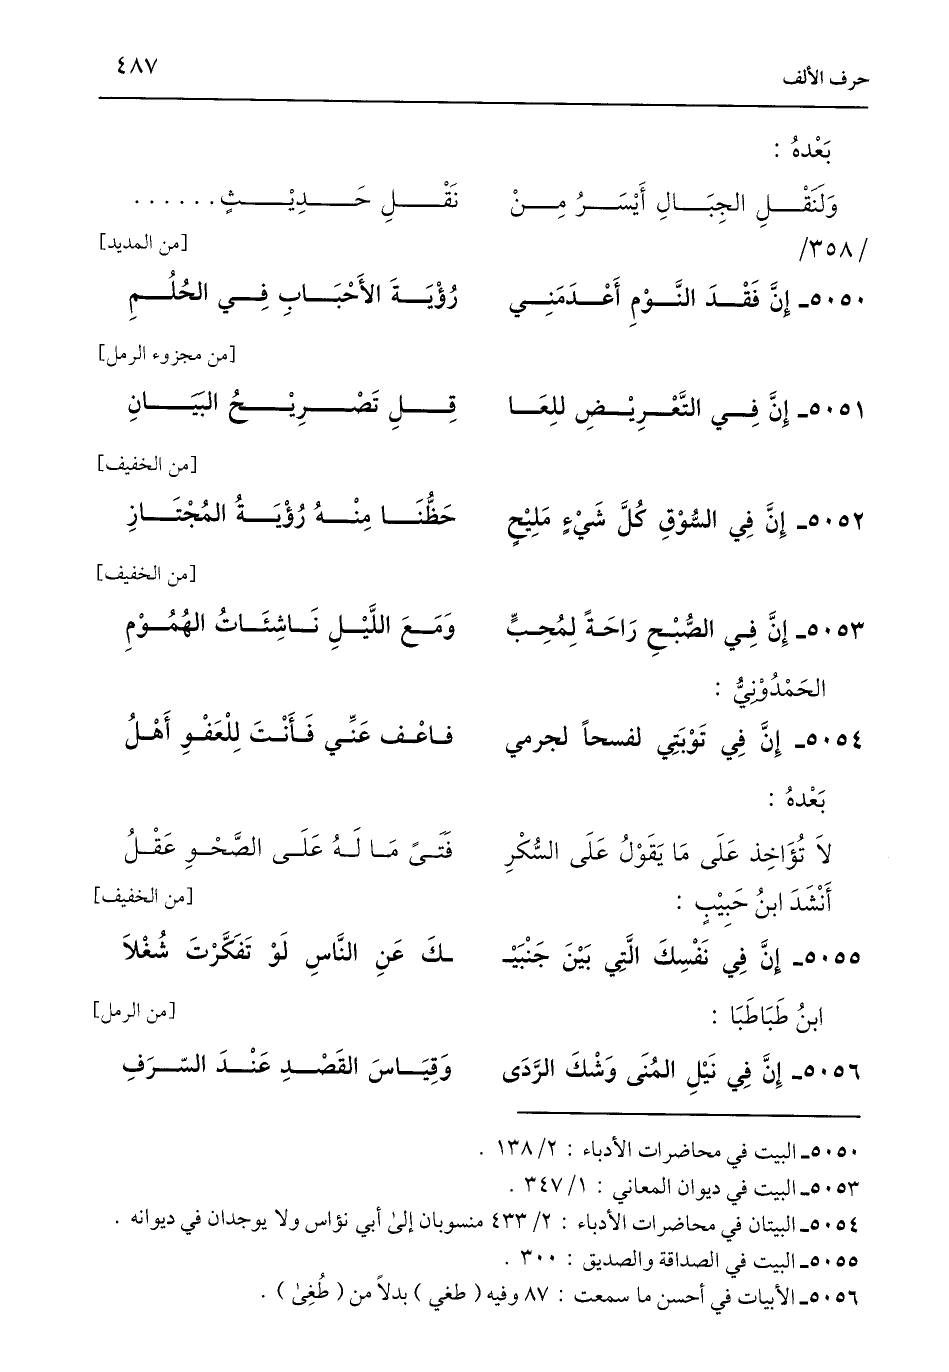 ٤٨٧
حرف الألف
بَعْدهُ :
وَلَنَقْلِ الجِبَالِ أَيْسَرُ مِنْ نَقْلِ حَدِيْثٍ . . . . . .
/٣٥٨/ [من المديد]
٥٠٥٠ـ إِنَّ فَقْدَ النَّوْمِ أَعْدَمَنِي رُؤْيَةَ الأَحْبَابِ فِي الحُلُمِ
[من مجزوء الرمل]
٥٠٥١ـ إِنَّ فِي التَّعْرِيْضِ للعَا قِلِ تَصْرِيْحُ البَيَانِ
[من الخفيف]
٥٠٥٢ـ إِنَّ فِي السُّوْقِ كُلَّ شَيْءٍ مَلِيْحٍ حَظُّنَا مِنْهُ رُؤْيَةُ المُجْتَازِ
[من الخفيف]
٥٠٥٣ـ إِنَّ فِي الصُّبْحِ رَاحَةً لِمُحِبٍّ وَمَعَ اللَّيْلِ نَاشِئَاتُ الهُمُوْمِ
الحَمْدُوْنِيُّ :
٥٠٥٤ـ إِنَّ فِي تَوْبَتِي لفسحاً لجرمي فاعْف عَنِّي فَأَنْتَ لِلْعَفْوِ أَهْلُ
بَعْدهُ :
لاَ تُؤَاخِذ عَلَى مَا يَقَوْلُ عَلَى السُّكْرِ فَتَىً مَا لَهُ عَلَى الصَّحْوِ عَقْلُ
أَنْشَدَ ابنُ حَبِيْبٍ : [من الخفيف]
٥٠٥٥ـ إِنَّ فِي نَفْسِكَ الَّتِي بَيْنَ جَنْبَيْـ ـكَ عَنِ النَّاسِ لَوْ تَفَكَّرْتَ شُغْلاَ
ابنُ طَبَاطَبَا : [من الرمل]
٥٠٥٦ـ إِنَّ فِي نَيْلِ المُنَى وَشْكَ الرَّدَى وَقِيَاسَ القَصْدِ عَنْدَ السّرَفِ
٥٠٥٠ـ البيت في محاضرات الأدباء : ٢/ ١٣٨ .
٥٠٥٣ـ البيت في ديوان المعاني : ١/ ٣٤٧ .
٥٠٥٤ـ البيتان في محاضرات الأدباء : ٢/ ٤٣٣ منسوبان إلىٰ أبي نؤاس ولا يوجدان في ديوانه .
٥٠٥٥ـ البيت في الصداقة والصديق : ٣٠٠ .
٥٠٥٦ـ الأبيات في أحسن ما سمعت : ٨٧ وفيه ( طغي ) بدلاً من ( طُغِىٰ ) .